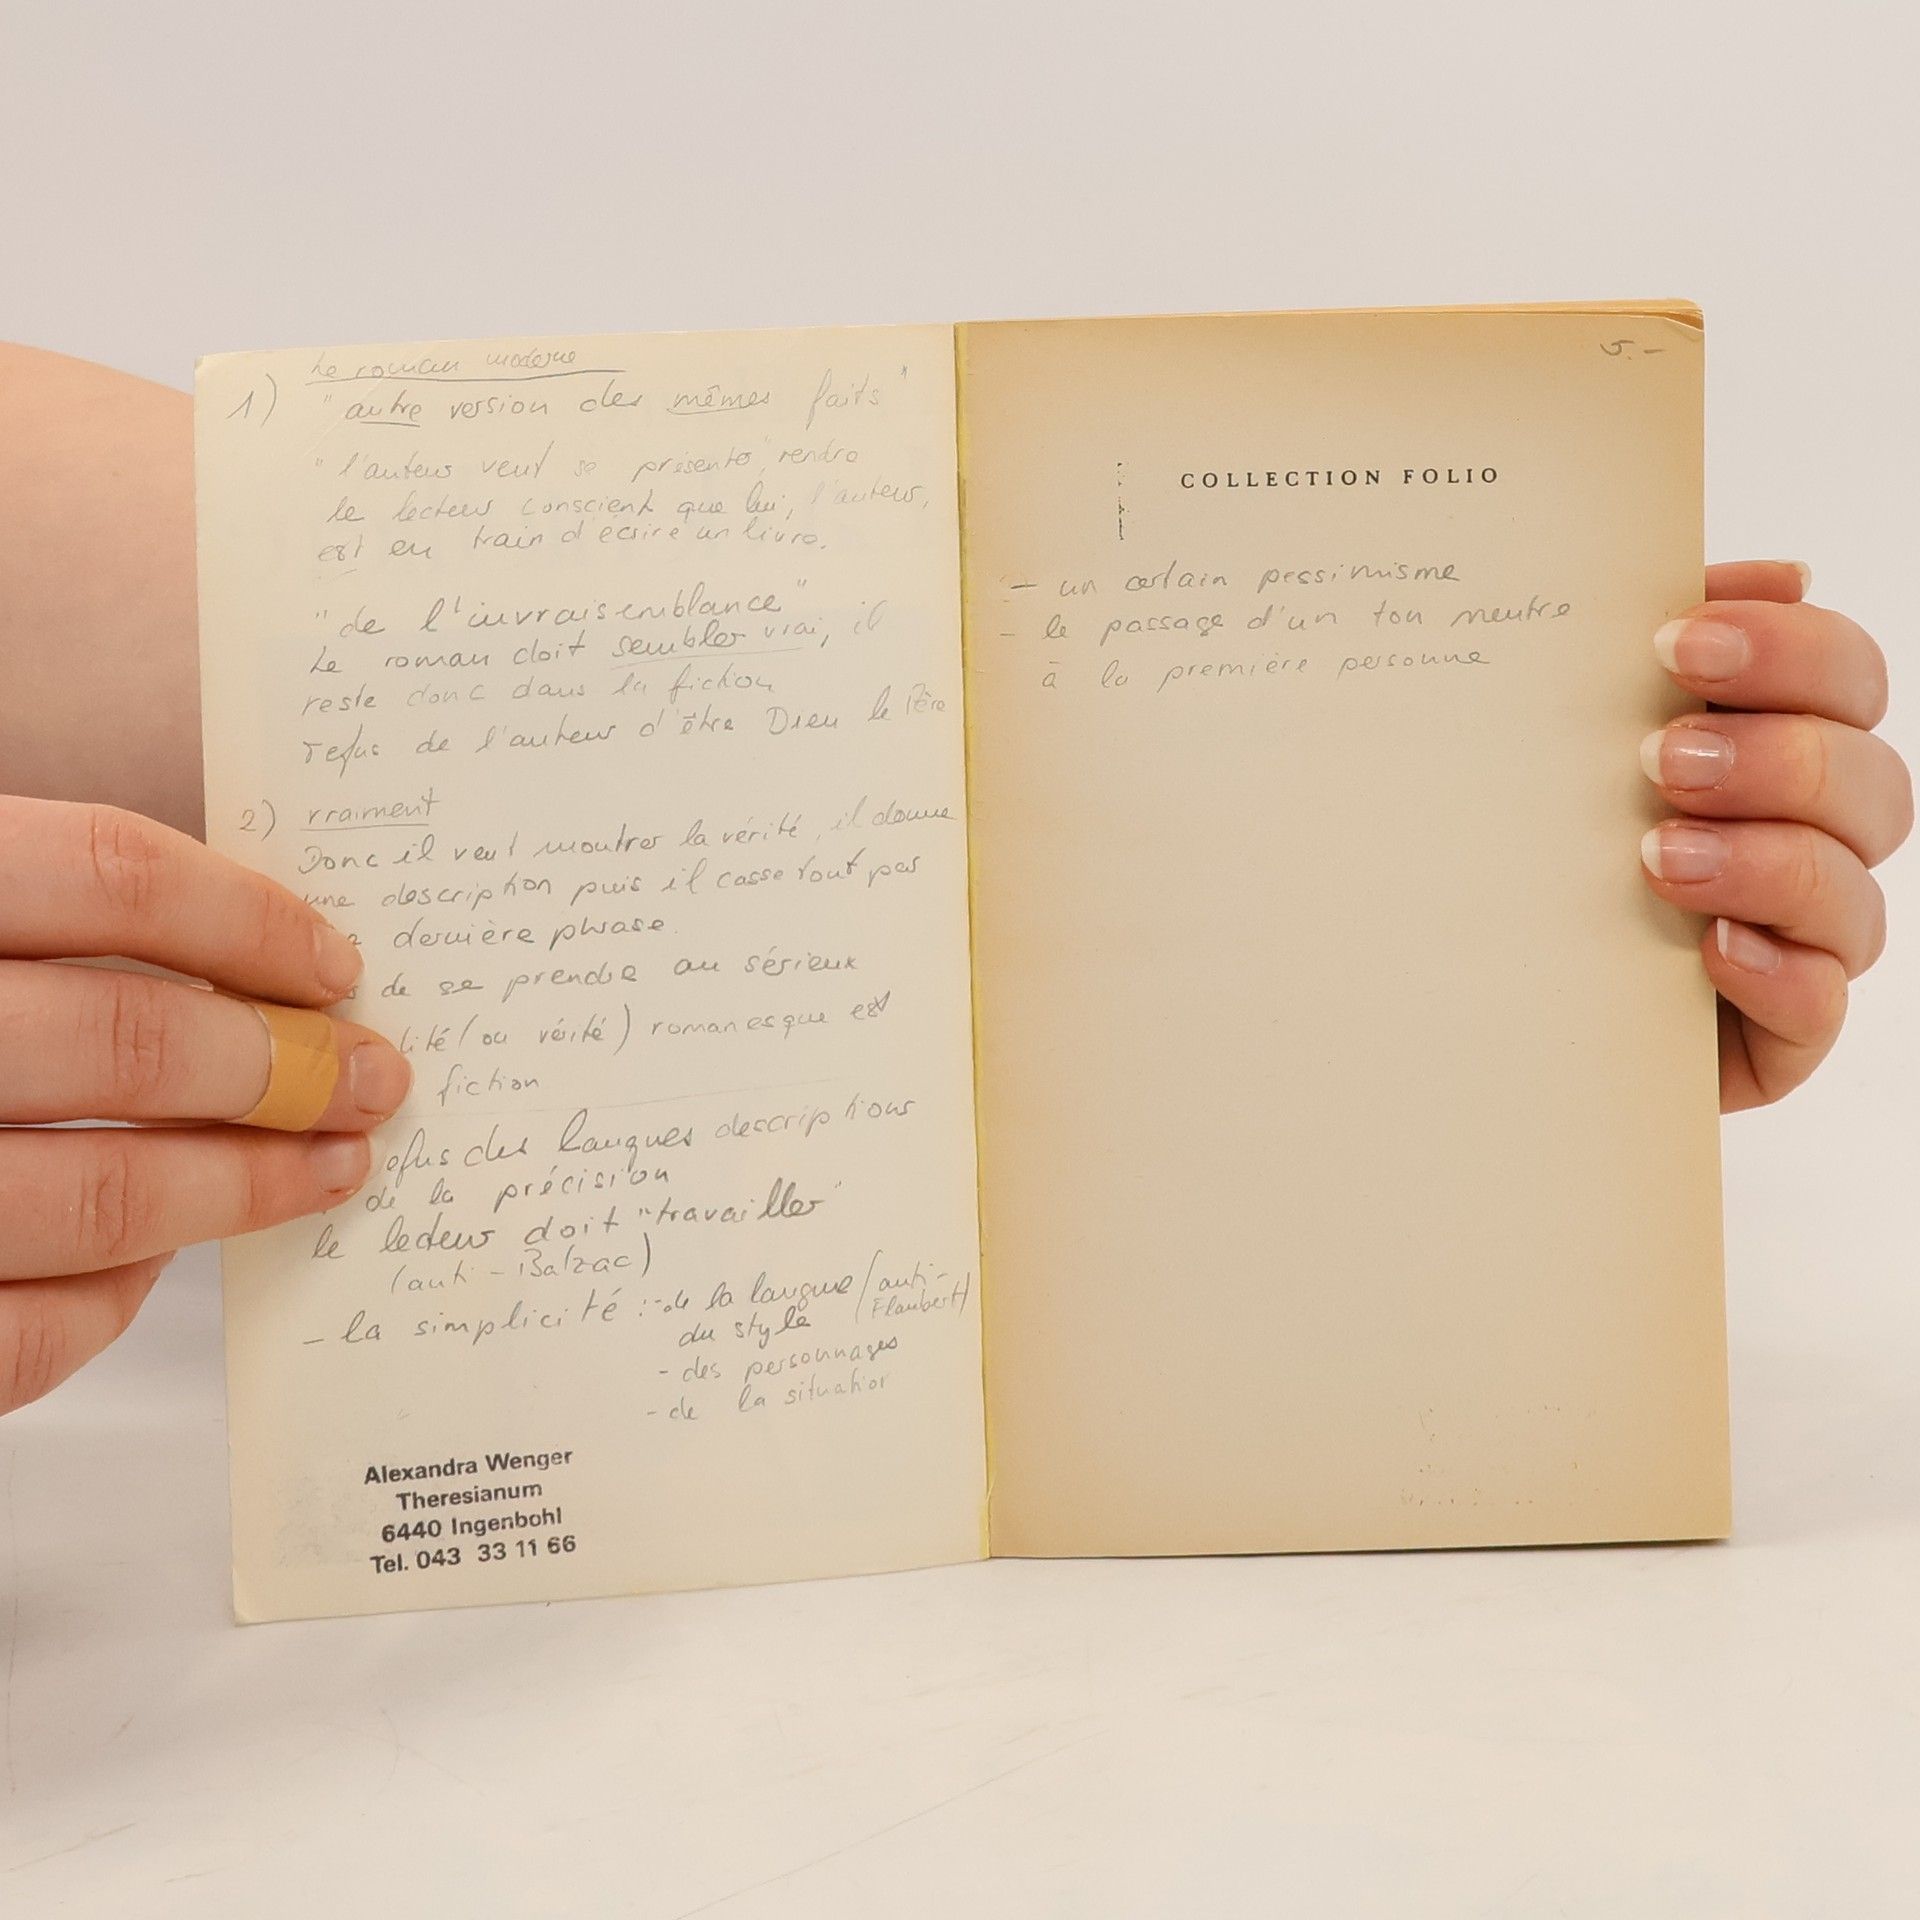 Le roman moderne
1) "autre version des mêmes faits"
"l'auteur veut se présenter", rendre
le lecteur conscient que lui, l'auteur,
est en train d'écrire un livre.
"de l'invraisemblance"
Le roman doit sembler vrai, il
reste donc dans la fiction
refus de l'auteur d'être Dieu le Père
2) vraiment
Donc il veut montrer la vérité, il donne
une description puis il casse tout par
dernière phrase.
de se prendre au sérieux
lité (ou vérité) romanesque est
fiction
efus des longues descriptions
de la précision
le lecteur doit "travailler"
(anti-Balzac)
- la simplicité : - de la langue (anti-
Flaubert)
du style
- des personnages
- de la situation
Alexandra Wenger
Theresianum
6440 Ingenbohl
Tel. 043 33 11 66
5.-
COLLECTION FOLIO
- un certain pessimisme
- le passage d'un ton neutre
à la première personne